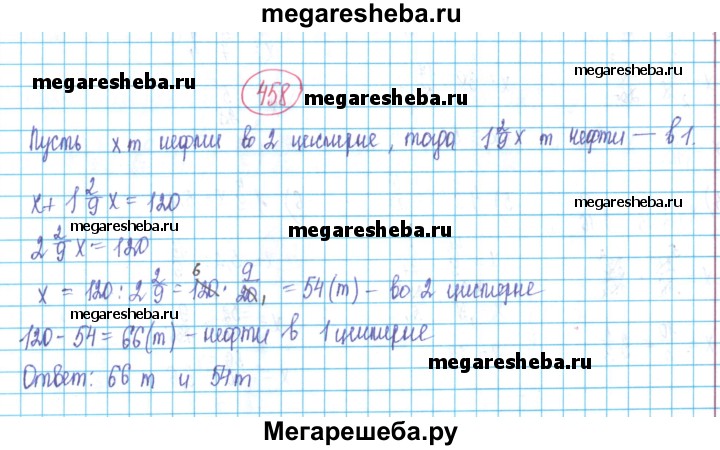 megaresheba.com
megaresheba.ru megaresheba.ru
458 megaresheba.ru
Пусть x т нефти во 2 цистерне, тогда 1 2/9 x т нефти — в 1.
x + 1 2/9 x = 120
megaresheba.ru megaresheba.ru megaresheba.ru
2 2/9 x = 120
x = 120 : 2 2/9 = 120 6 · 9/20 1 = 54 (т) – во 2 цистерне
megaresheba.ru
120 - 54 = 66 (т) – нефти в 1 цистерне
megaresheba.ru
Ответ: 66 т и 54 т
Мегарешеба.ру